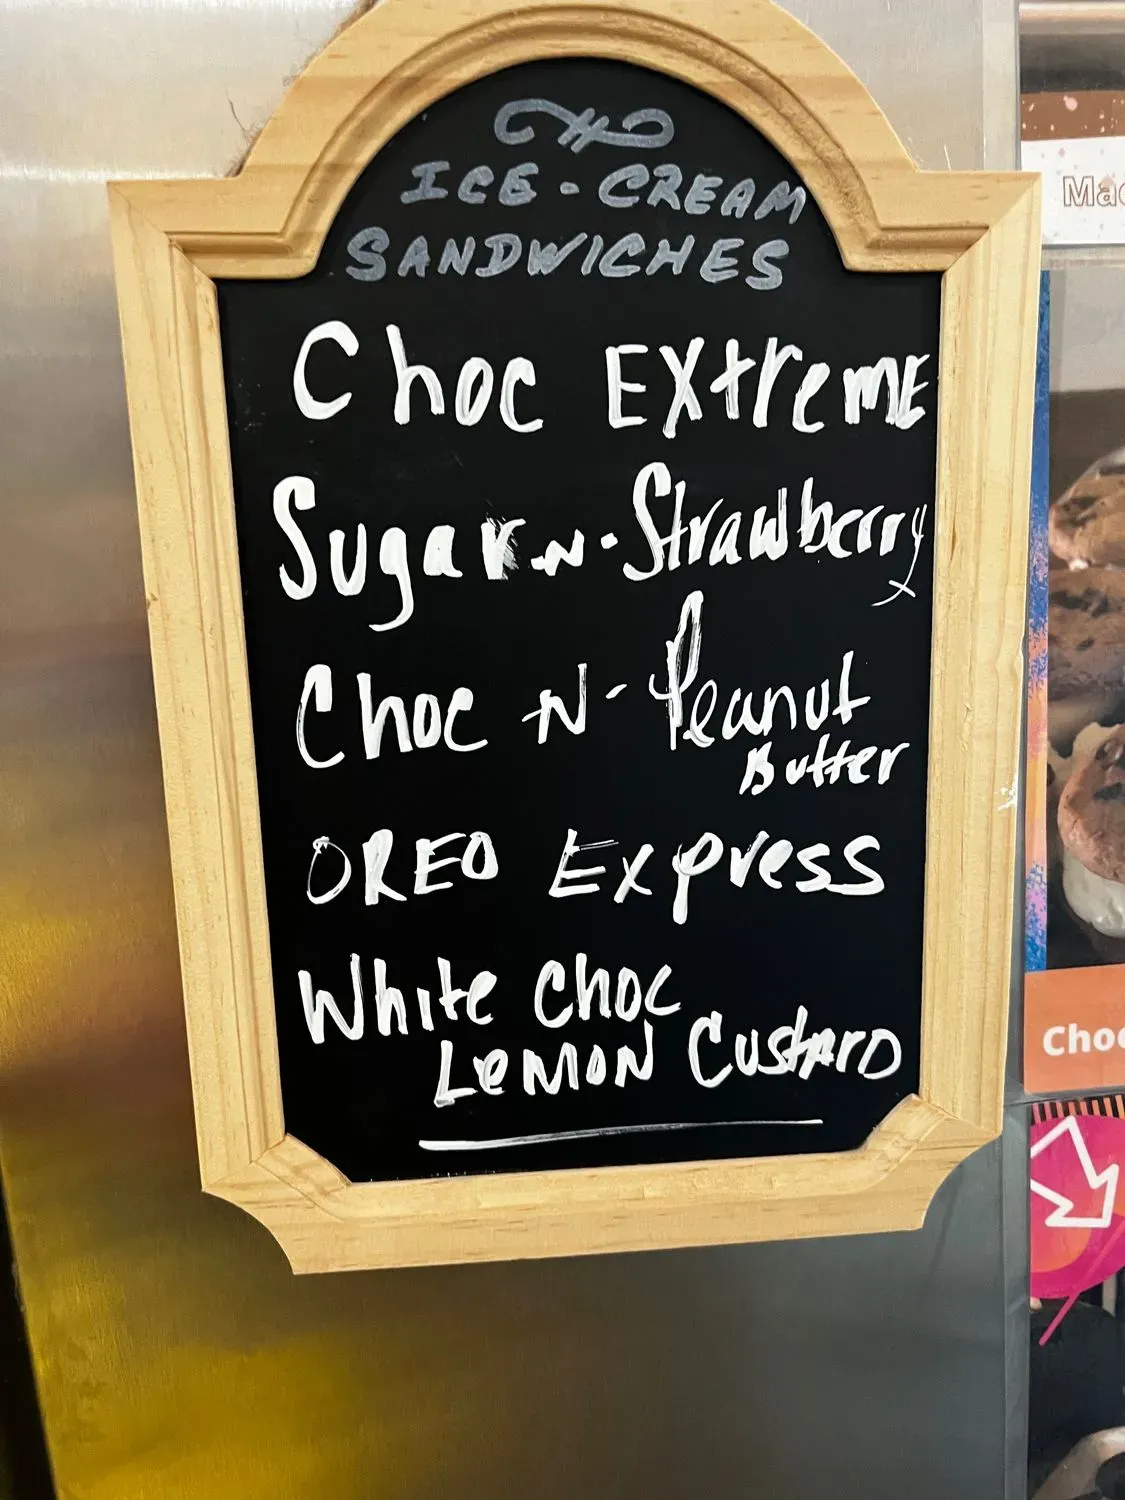 ICE-CREAM
SANDWICHES
Choc EXtremE
Sugar N-Strawberry
Choc N-Peanut
Butter
OREO Express
White Choc
LeMON CustArD
Mac
Choc